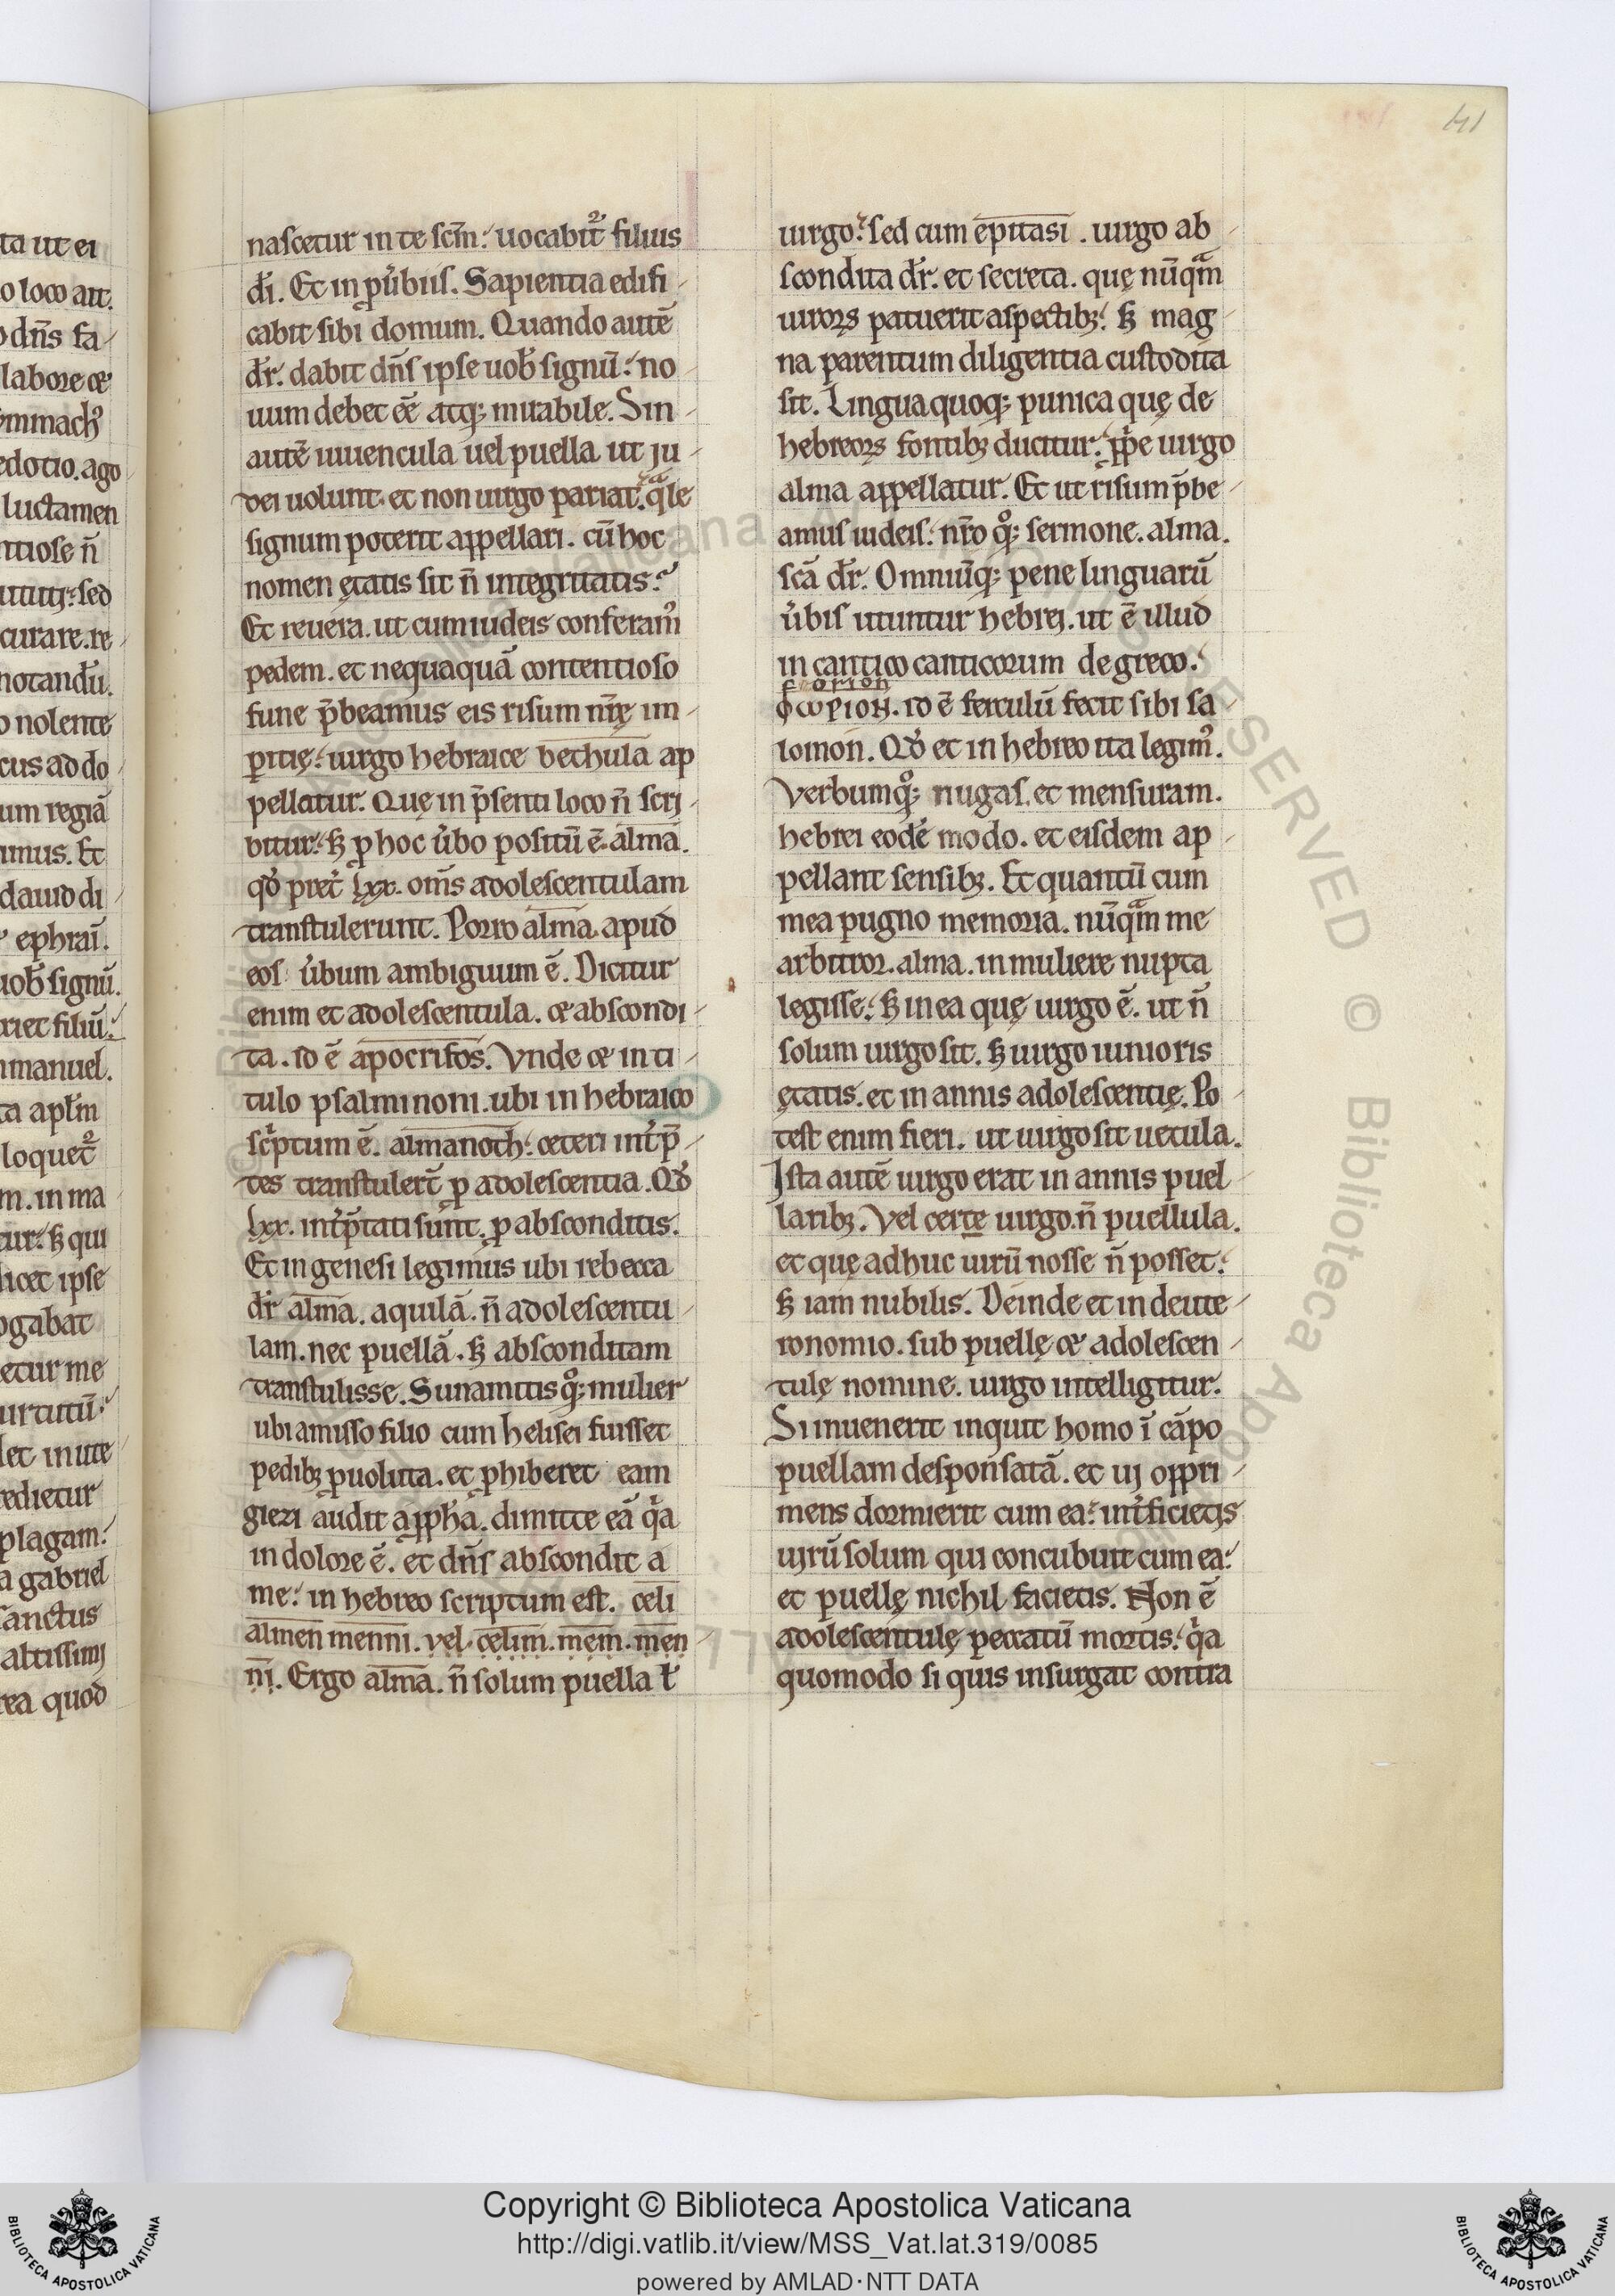 41
ta ut ei
o loco ait.
o dn̄s fa-
labore &
ymmach᷒
edotio. ago
luctamen
ntiose n̄
utitꝛ; sed
curare. re-
notandū.
o nolente
cus ad do-
um regiā
imus. Et
dauid di-
ephraī.
uob̄ signū.
riet filiū.
manuel.
ta apl̄m
loquet᷑
m. in ma
tur. sꝫ qui
licet ipse
ogabat
etur me
uirtutū.
let in ute
edietur
plagam.
a gabriel
sanctus
altissimj
rea quod
nascetur in te scm̄. uocabit᷑ filius
dī. Et in puͥbiis. Sapientia edifi-
cabit sibi domum. Quando autē
dr̄. dabit dn̄s ipse uob̄ signū. no-
uum debet eē atq; mirabile. Sin-
autē iuuencula uel puella ut ju-
dei uolunt. et non uirgo pariat. qᵃle
signum poterit appellari. cū hoc
nomen ętatis sit n̄ integritatis.
Et reuera. ut cum iudeis conferam᷒
pedem. et nequaquā contentioso
fune p̄beamus eis risum nr̄ę im-
ꝑitię. uirgo hebraice bethula ap
pellatur. Quę in p̄senti loco n̄ scrj-
bitur. sꝫ ꝓ hoc u͛bo positū ē. alma.
qđ pret͛ lxx. om̄s adolescentulam
transtulerunt. Porro alma. apud
eos u͛bum ambiguum ē. Dicitur
enim et adolescentula. & abscondi-
ta. id ē apocrifos. Vnde & in ti-
tulo psalmi noni. ubi in hebraico
scͥptum ē. almanoth. ceteri int͛p̄-
tes transtuler̄t ꝓ adolescentia. Qđ
lxx. int͛p̄tati sunt. ꝓ absconditis.
Et in genesi legimus ubi rebecca
dr̄ alma. aquilā. n̄ adolescentu-
lam. nec puellā. sꝫ absconditam
transtulisse. Sunamitis qͦ; mulier
ubi amisso filio cum helisei fuisset
pedibꝫ ꝓuoluta. et ꝓhiberet eam
giezi audit a ꝓpha. dimitte eā qͥa
in dolore ē. et dn̄s abscondit a
me. in hebreo scriptum est. celi
almen menni. vel. celim. mem. men-
nj. Ergo alma. n̄ solum puella ł
uirgo. sed cum epitasi. uirgo ab-
scondita dr̄. et secreta. quę nūqᵃm
uiroꝝ patuerit aspectibꝫ. sꝫ mag-
na parentum diligentia custodita
sit. Lingua quoq; punica quę de
hebreoꝝ fontibꝫ ducitur. ꝓpͥe uirgo
alma appellatur. Et ut risum p̄be-
amus iudeis. nr̄o qͦ; sermone. alma.
scā dr̄. Omniūq; pene linguarū
u͛bis utuntur hebrej. ut ē illud
in cantico canticorum de greco.
forion
ϕωριoΝ. id ē ferculū fecit sibi sa-
lomon. Qđ et in hebreo ita legim᷒.
Verbumqͦ; nugas. et mensuram.
hebrei eodē modo. et eisdem ap-
pellant sensibꝫ. Et quantū cum
mea pugno memoria. nūqᵃm me
arbitror. alma. in muliere nupta
legisse. sꝫ in ea quę uirgo ē. ut n̄
solum uirgo sit. sꝫ uirgo iunioris
ętatis. et in annis adolescentię. Po-
test enim fieri. ut uirgo sit uetula.
Ista autē uirgo erat in annis puel-
laribꝫ. Vel certe uirgo. n̄ puellula.
et quę adhuc uirū nosse n̄ posset.
sꝫ iam nubilis. Deinde et in deute-
ronomio. sub puellę & adolescen-
tulę nomine. uirgo intelligitur.
Si inuenerit inquit homo ī cāpo
puellam desponsatā. et uj oppri-
mens dormierit cum ea. int͛ficietjs
ujrū solum qui concubuit cum ea.
et puellę nichil facietis. Non ē
adolescentulę peccatū mortis. qͥa
quomodo si quis insurgat contra
Copyright © Biblioteca Apostolica Vaticana
http://digi.vatlib.it/view/MSS_Vat.lat.319/0085
powered by AMLAD·NTT DATA
BIBLIOTECA APOSTOLICA VATICANA
BIBLIOTECA APOSTOLICA VATICANA